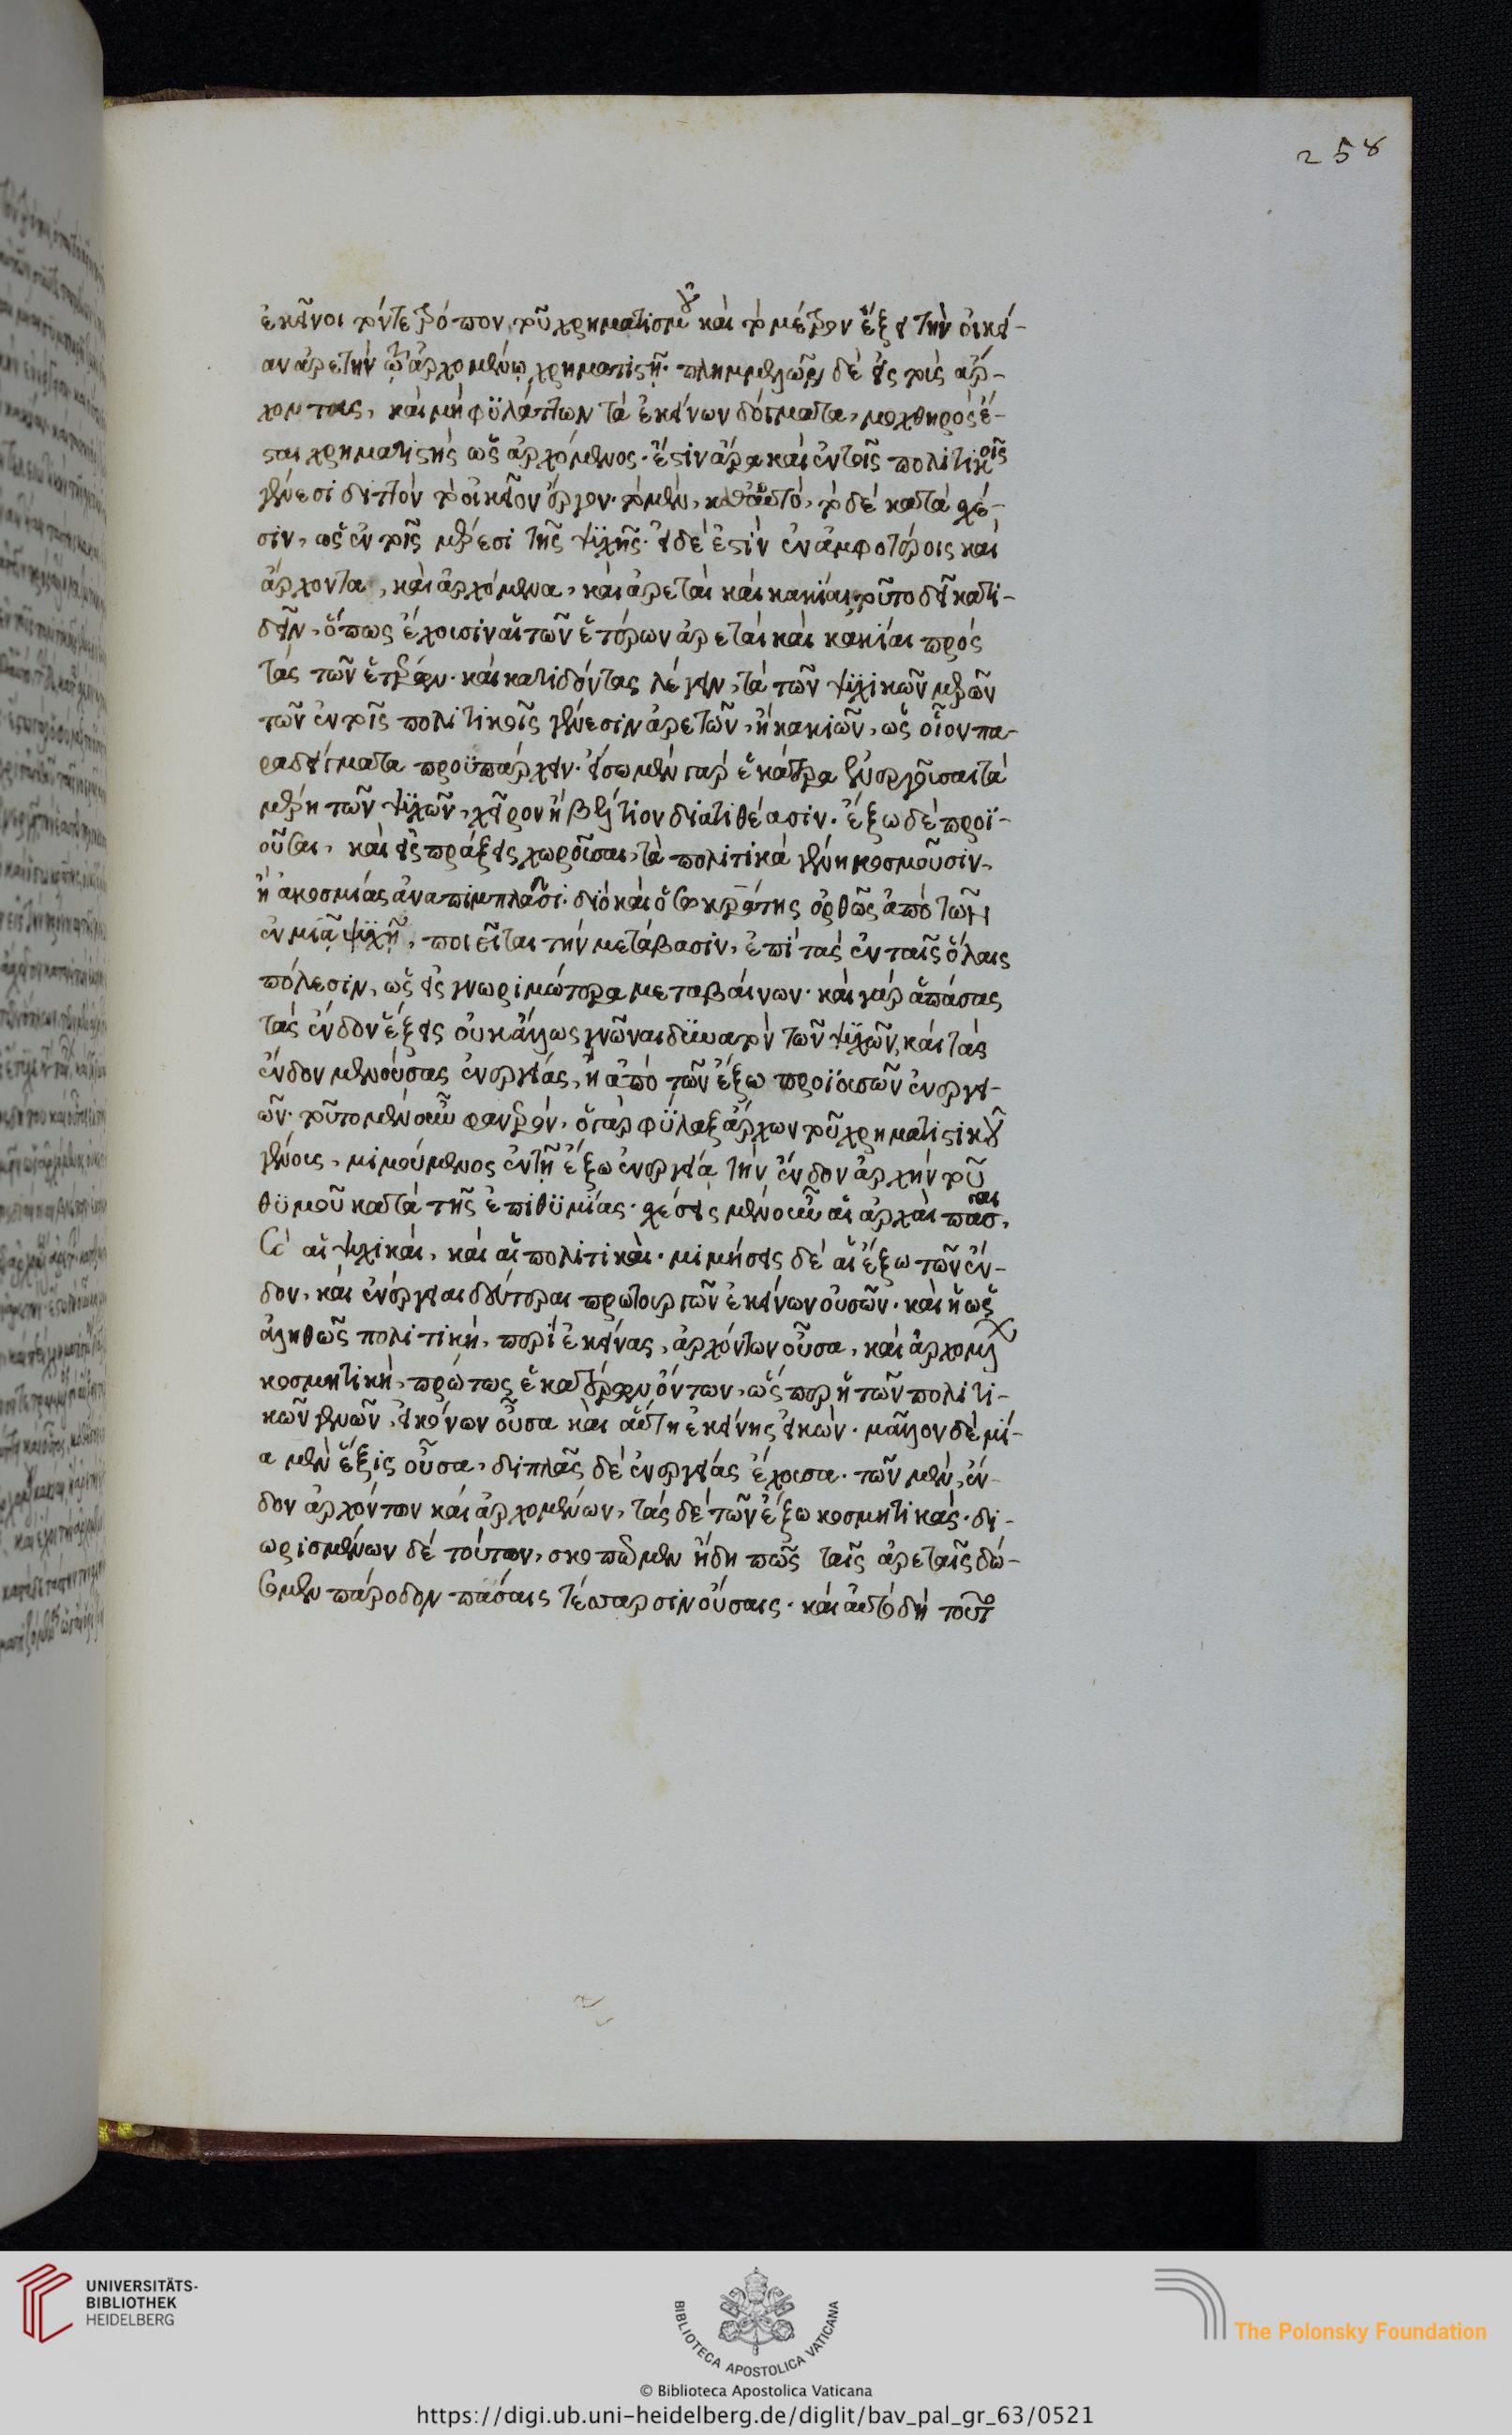 258
ἐκεῖνοι τόντε τρόπον τοῦ χρηματισμοῦ καὶ τὸ μέτρον ἕξει τὴν οἰκεί-
αν ἀρετὴν τῷ ἀρχομένῳ χρηματιστῇ. πλημμελῶν δὲ εἰς τοὺς ἄρ-
χοντας, καὶ μὴ φυλάττων τὰ ἐκείνων δόγματα, μοχθηρὸς ἔ-
σται χρηματιστὴς ὡς ἀρχόμενος. ἔστιν ἄρα καὶ ἐν τοῖς πολιτικοῖς
γένεσι διττὸν τὸ οἰκεῖον ἔργον. τὸ μὲν, καθ' αὑτὸ, τὸ δὲ κατὰ σχέ-
σιν, ὡς ἐν τοῖς μέρεσι τῆς ψυχῆς. εἰ δέ ἐστιν ἐν ἀμφοτέροις καὶ
ἄρχοντα, καὶ ἀρχόμενα, καὶ ἀρεταὶ καὶ κακίαι, τοῦτο δεῖ κατι-
δεῖν, ὅπως ἔχουσιν αἱ τῶν ἑτέρων ἀρεταὶ καὶ κακίαι πρὸς
τὰς τῶν ἑτέρων. καὶ κατιδόντας λέγειν, τὰ τῶν ψυχικῶν μερῶν
τῶν ἐν τοῖς πολιτικοῖς γένεσιν ἀρετῶν, ἢ κακιῶν, ὡς οἷον πα-
ραδείγματα προϋπάρχειν. εἴσω μὲν γὰρ ἑκάτερα ἐνεργοῦσαι τὰ
μέρη τῶν ψυχῶν, χεῖρον ἢ βέλτιον διατιθέασιν. ἔξω δὲ προϊ-
οῦσαι, καὶ εἰς πράξεις χωροῦσαι, τὰ πολιτικὰ γένη κοσμοῦσιν,
ἢ ἀκοσμίας ἀναπιμπλᾶσι. διὸ καὶ ὁ Σωκράτης ὀρθῶς ἀπὸ τῶν
ἐν μιᾷ ψυχῇ, ποιεῖται τὴν μετάβασιν, ἐπὶ τὰς ἐν ταῖς ὅλαις
πόλεσιν, ὡς εἰς γνωριμώτερα μεταβαίνων. καὶ γὰρ ἁπάσας
τὰς ἔνδον ἕξεις οὐκ ἄλλως γνῶναι δυνατὸν τῶν ψυχῶν, καὶ τὰς
ἔνδον μενούσας ἐνεργείας, ἢ ἀπὸ τῶν ἔξω προϊουσῶν ἐνεργει-
ῶν. τοῦτο μὲν οὖν φανερόν. ὁ γὰρ φύλαξ ἄρχων τοῦ χρηματιστικοῦ
γένους, μιμούμενος ἐν τῇ ἔξω ἐνεργείᾳ τὴν ἔνδον ἀρχὴν τοῦ
θυμοῦ κατὰ τῆς ἐπιθυμίας. σχέσεις μὲν οὖν αἱ ἀρχαὶ πᾶσαι,
αἱ ψυχικαὶ, καὶ αἱ πολιτικαὶ. μιμήσεις δὲ αἱ ἔξω τῶν ἔν-
δον, καὶ ἐνέργειαι δεύτεραι πρωτουργῶν ἐκείνων οὐσῶν. καὶ ἡ ὡς
ἀληθῶς πολιτικὴ, περὶ ἐκείνας, ἀρχόντων οὖσα, καὶ ἀρχομένων
κοσμητικὴ, πρώτως ἑκατέρων ὄντων, ὥσπερ ἡ τῶν πολιτι-
κῶν γενῶν, εἰκόνων οὖσα καὶ αὕτη ἐκείνης εἰκών. μᾶλλον δὲ μί-
α μὲν ἕξις οὖσα, διπλᾶς δὲ ἐνεργείας ἔχουσα. τῶν μὲν, ἔν-
δον ἀρχόντων καὶ ἀρχομένων, τὰς δὲ τῶν ἔξω κοσμητικάς. δι-
ωρισμένων δὲ τούτων, σκοπῶμεν ἤδη πῶς ταῖς ἀρεταῖς δώ-
σομεν πάροδον πάσαις τέσσαρσιν οὔσαις. καὶ αὐτὸ δὴ τοῦτο
UNIVERSITÄTS-
BIBLIOTHEK
HEIDELBERG
BIBLIOTECA APOSTOLICA VATICANA
The Polonsky Foundation
© Biblioteca Apostolica Vaticana
https://digi.ub.uni-heidelberg.de/diglit/bav_pal_gr_63/0521